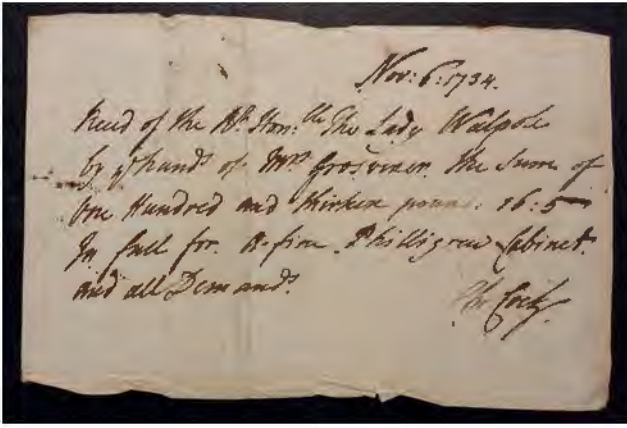 Nov: 6: 1734.
Recd of the Rt. Hon:ble The Lady Walpole
by ye hands of Mrs Grosvenor. the Sume of
One Hundred and thirteen pound: 16: 5
In full for. a fine. Philligrew Cabinet.
and all Demands.
Chr Cock.